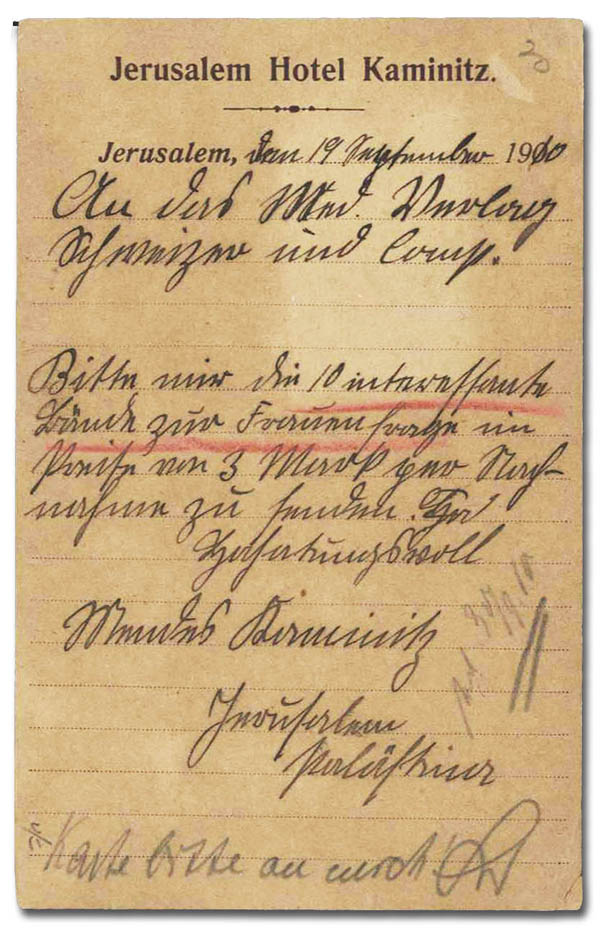 20
Jerusalem Hotel Kaminitz.
Jerusalem, den 19 September 1910
An das Med. Verlag
Schweizer und Comp.
Bitte mir die 10 interessante
Bände zur Frauenfrage im
Preise von 3 Mark per Nach-
nahme zu senden.
Hochachtungsvoll
Mendes Kaminitz
Jerusalem
Palästina
Karte bitte an